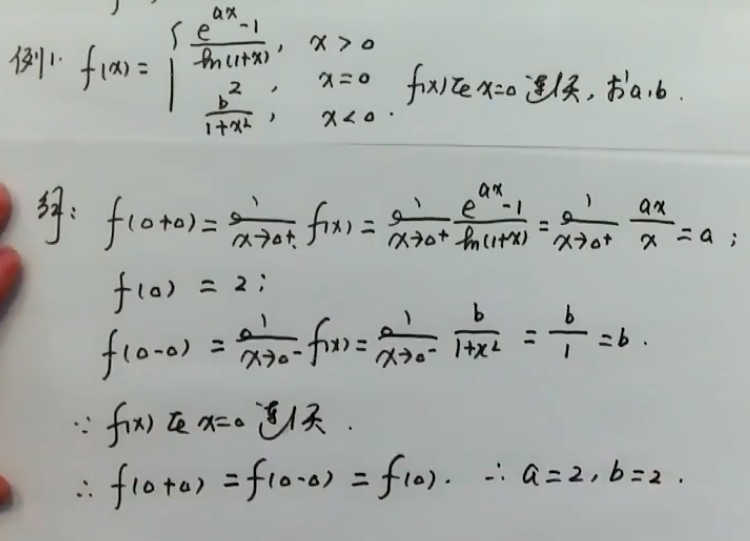 例1. f(x) = { (e^{ax}-1)/ln(1+x), x>0
2, x=0 f(x)在x=0连续, 求a.b.
b/(1+x²), x<0.
解: f(0+0) = lim_{x→0+} f(x) = lim_{x→0+} (e^{ax}-1)/ln(1+x) = lim_{x→0+} ax/x = a;
f(0) = 2;
f(0-0) = lim_{x→0-} f(x) = lim_{x→0-} b/(1+x²) = b/1 = b.
∵ f(x)在x=0连续.
∴ f(0+0) = f(0-0) = f(0). ∴ a=2, b=2.